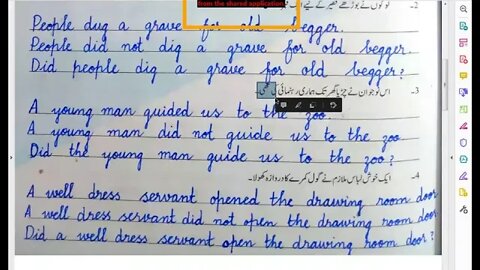 from the shared application
People dug a grave for old begger.
People did not dig a grave for old begger.
Did people dig a grave for old begger?
3- اس نوجوان نے چڑیا گھر تک ہماری رہنمائی کی تھی۔
A young man guided us to the zoo.
A young man did not guide us to the zoo
Did the young man guide us to the zoo?
4- ایک خوش لباس ملازم نے گول کمرے کا دروازہ کھولا۔
A well dress servant opened the drawing room door
A well dress servant did not open the drawing room door
Did a well dress servant open the drawing room door?